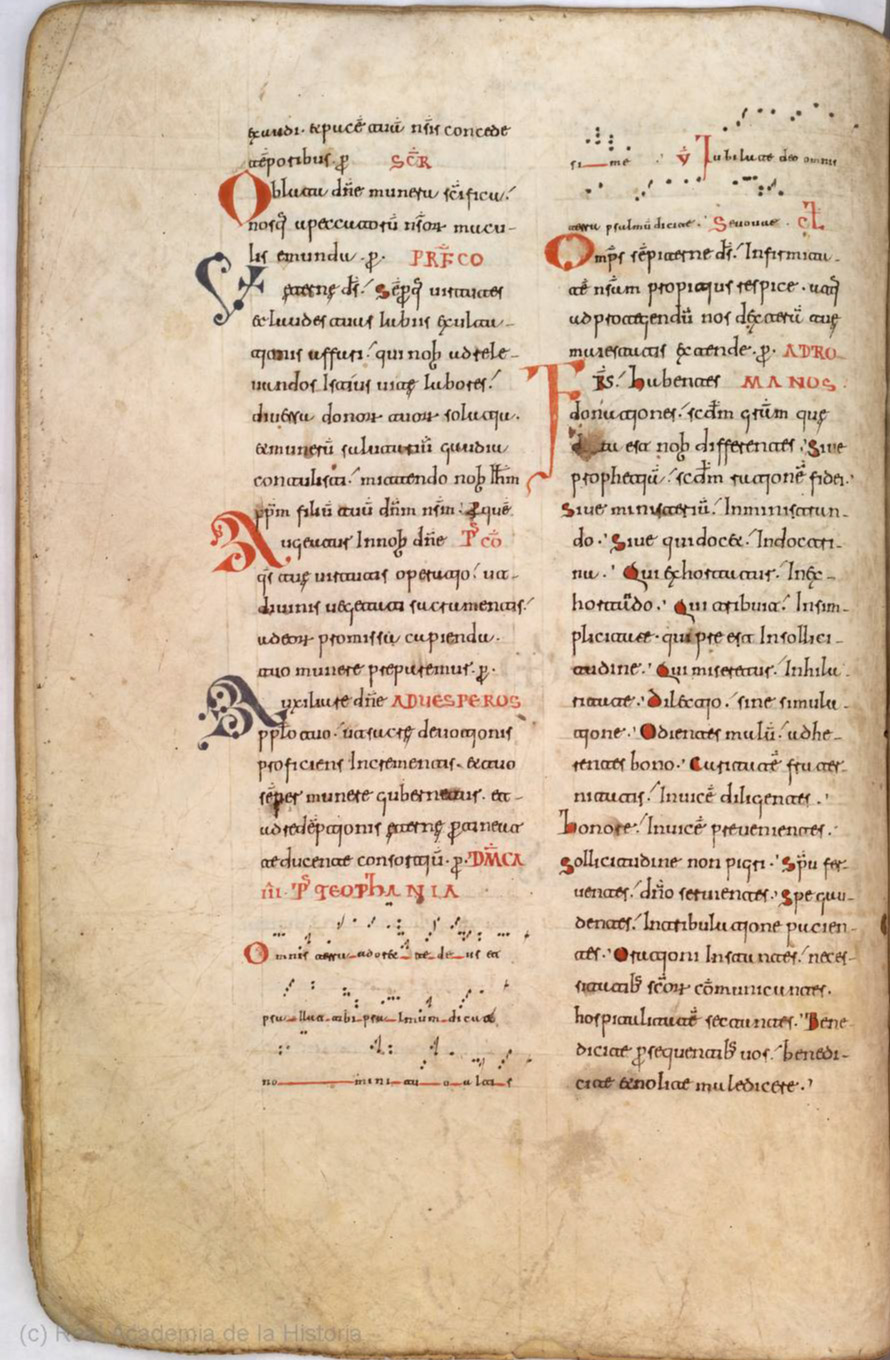 exaudi· & pacē tuā nr̄is concede
tēporibus· ꝑ SCR̄
Oblata dn̄e munera sc̄ifica·'
nosq̄ a peccatorū nr̄oꝝ macu-
lis emunda· ꝑ· PREFCO
VE ęterne ds̄·' Sēpq̄ uirtutes
& laudes tuas labiis exulta-
tionis affari·' qui nob̄ ad rele-
uandos istius uitę labores·'
diuersa donoꝝ tuoꝝ solatia·
& munerū salutariū gaudia
contulisti·' mittendo nob̄ Ih̄m
xp̄m filiū tuū dn̄m nr̄m· ꝑ quē
Augeatur In nob̄ dn̄e Ps̄ cō
qs̄ tuę uirtutis operatio·' ut
diuinis uegetati sacramentis·'
ad eoꝝ promissa capienda·
tuo munere preparemur· ꝑ·
Auxiliare dn̄e AD UESPEROS
pplo tuo·' ut sacrę deuotionis
proficiens Incrementis· & tuo
sēper munere gubernetur· et
ad redēptionis ęternę ꝑtineat
te ducente consortiū· ꝑ· DM̄CA
III· Ps̄ TEOPhANIA
Omnis terra adoret te deus et
psallat tibi psalmum dicat
nomini tuo altis
sime · V̄ Iubilate deo omnis
terra psalmū dicite· Seuouae· C̄L
Omp̄s sēpiterne ds̄·' Infirmita-
tē nr̄am propitius respice· atq̄
ad protegendū nos dexterā tuę
maiestatis extende· ꝑ· AD RO
FRS̄·' habentes MANOS·
donationes·' scd̄m gr̄am quę
data est nob̄ differentes·' Siue
prophetiā·' scd̄m rationē fidei·'
Siue ministeriū·' In ministran-
do·' Siue qui docet·' In doctri-
na·' Qui exhortatur·' In ex-
hortādo·' Qui tribuit·' In sim-
plicitate· qui pre est In sollici-
tudine·' Qui miseretur·' In hila-
ritate·' Dilectio·' sine simula-
tione·' Odientes malū·' adhe-
rentes bono·' Caritatē frater-
nitatis·' Inuicē diligentes·'
honore·' Inuicē preuenientes·'
Sollicitudine non pigri·' Sp̄u fer-
uentes·' dn̄o seruientes·' Spe gau-
dentes·' In tribulatione pacien-
tes·' Orationi Instantes·' neces-
sitatib̄ sc̄oꝝ cōmunicantes·
hospitalitatē sectantes·' Bene-
dicite ꝑsequentib̄ uos·' benedi-
cite & nolite maledicere·'
(c) Real Academia de la Historia